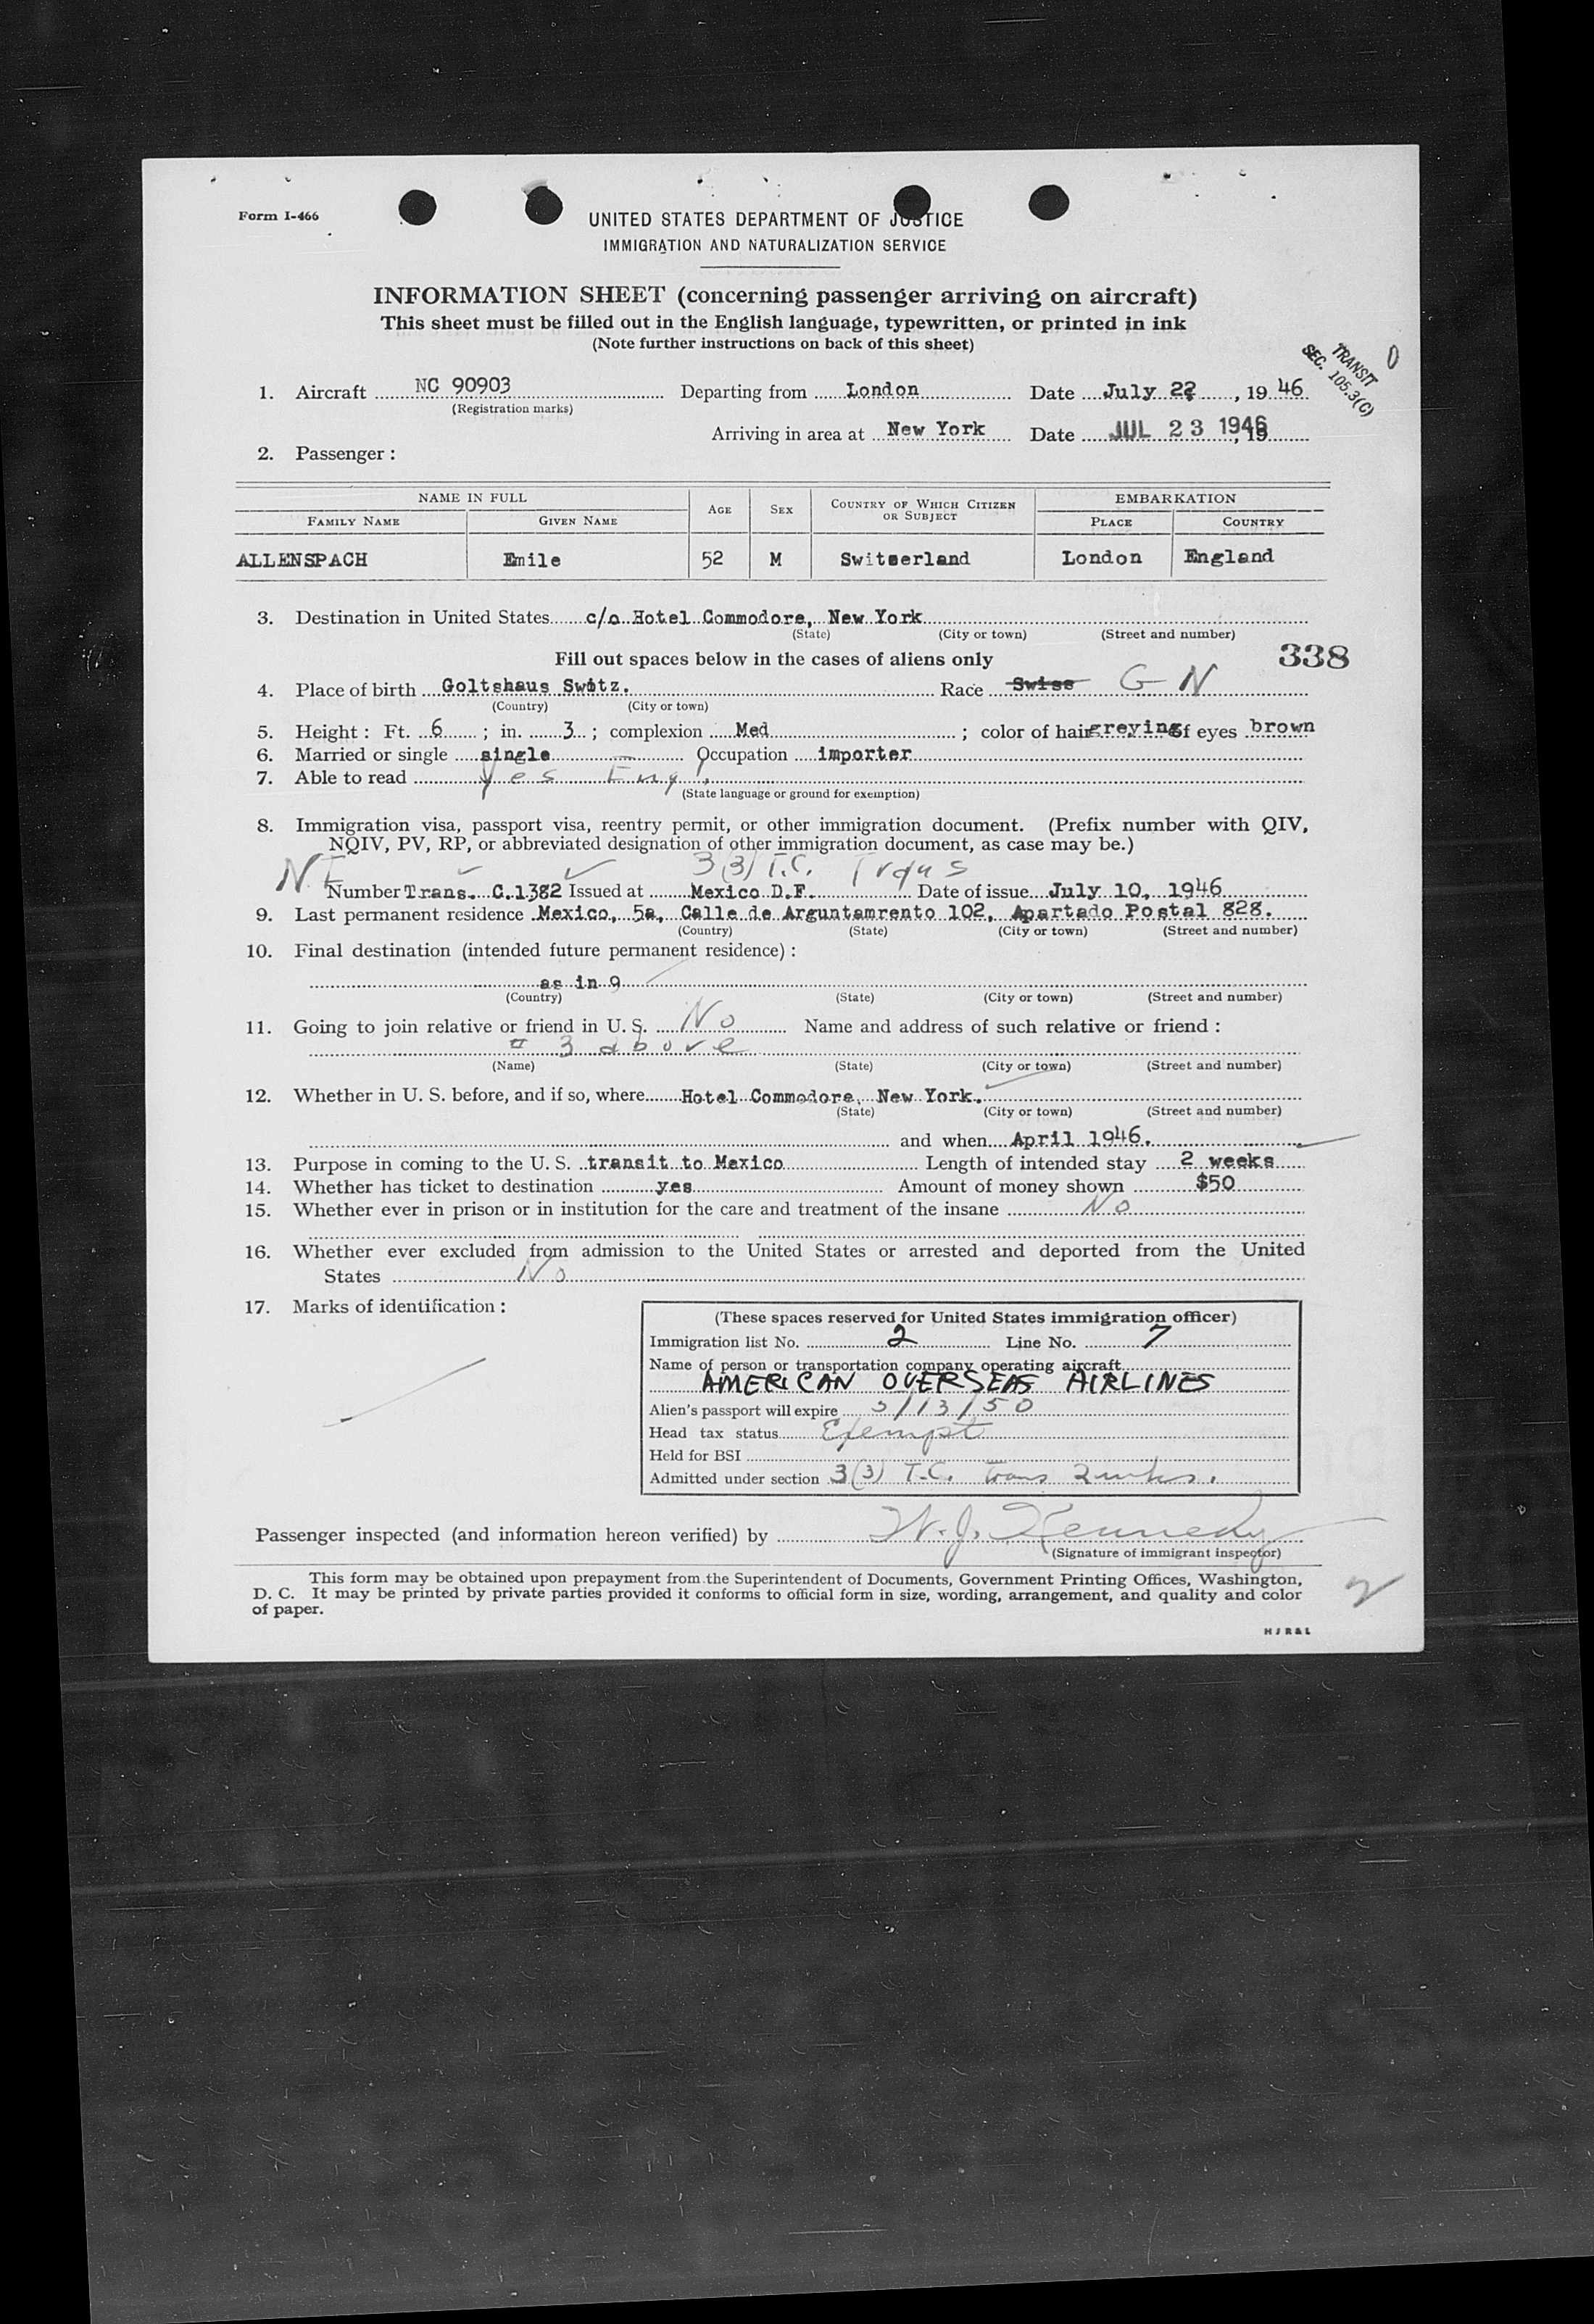 Form I-466
UNITED STATES DEPARTMENT OF JUSTICE
IMMIGRATION AND NATURALIZATION SERVICE
INFORMATION SHEET (concerning passenger arriving on aircraft)
This sheet must be filled out in the English language, typewritten, or printed in ink
(Note further instructions on back of this sheet)
TRANSIT
SEC. 105.3(C)
1. Aircraft NC 90903 Departing from London Date July 22, 1946
(Registration marks)
Arriving in area at New York Date JUL 23 1946, 19
2. Passenger:
NAME IN FULL AGE SEX COUNTRY OF WHICH CITIZEN OR SUBJECT EMBARKATION
FAMILY NAME GIVEN NAME PLACE COUNTRY
ALLENSPACH Emile 52 M Switzerland London England
3. Destination in United States c/o Hotel Commodore, New York
(State) (City or town) (Street and number)
Fill out spaces below in the cases of aliens only
338
4. Place of birth Goltshaus Switz. Race Swiss G N
(Country) (City or town)
5. Height: Ft. 6; in. 3; complexion Med; color of hair greying of eyes brown
6. Married or single single Occupation importer
7. Able to read Yes Eng.
(State language or ground for exemption)
8. Immigration visa, passport visa, reentry permit, or other immigration document. (Prefix number with QIV,
NQIV, PV, RP, or abbreviated designation of other immigration document, as case may be.)
3(3) T.C. Trans
Number Trans. C.1382 Issued at Mexico D.F. Date of issue July 10, 1946
9. Last permanent residence Mexico, 5a, Calle de Arguntamrento 102, Apartado Postal 828.
(Country) (State) (City or town) (Street and number)
10. Final destination (intended future permanent residence):
as in 9
(Country) (State) (City or town) (Street and number)
11. Going to join relative or friend in U. S. No Name and address of such relative or friend:
# 3 above
(Name) (State) (City or town) (Street and number)
12. Whether in U. S. before, and if so, where Hotel Commodore, New York.
(State) (City or town) (Street and number)
and when April 1946.
13. Purpose in coming to the U. S. transit to Mexico Length of intended stay 2 weeks
14. Whether has ticket to destination yes Amount of money shown $50
15. Whether ever in prison or in institution for the care and treatment of the insane No
16. Whether ever excluded from admission to the United States or arrested and deported from the United
States No
17. Marks of identification:
(These spaces reserved for United States immigration officer)
Immigration list No. 2 Line No. 7
Name of person or transportation company operating aircraft
AMERICAN OVERSEAS AIRLINES
Alien's passport will expire 3/13/50
Head tax status Exempt
Held for BSI
Admitted under section 3(3) T.C. Trans 2 wks.
Passenger inspected (and information hereon verified) by W. J. Kennedy
(Signature of immigrant inspector)
This form may be obtained upon prepayment from the Superintendent of Documents, Government Printing Offices, Washington,
D. C. It may be printed by private parties provided it conforms to official form in size, wording, arrangement, and quality and color
of paper.
2
H J R & L